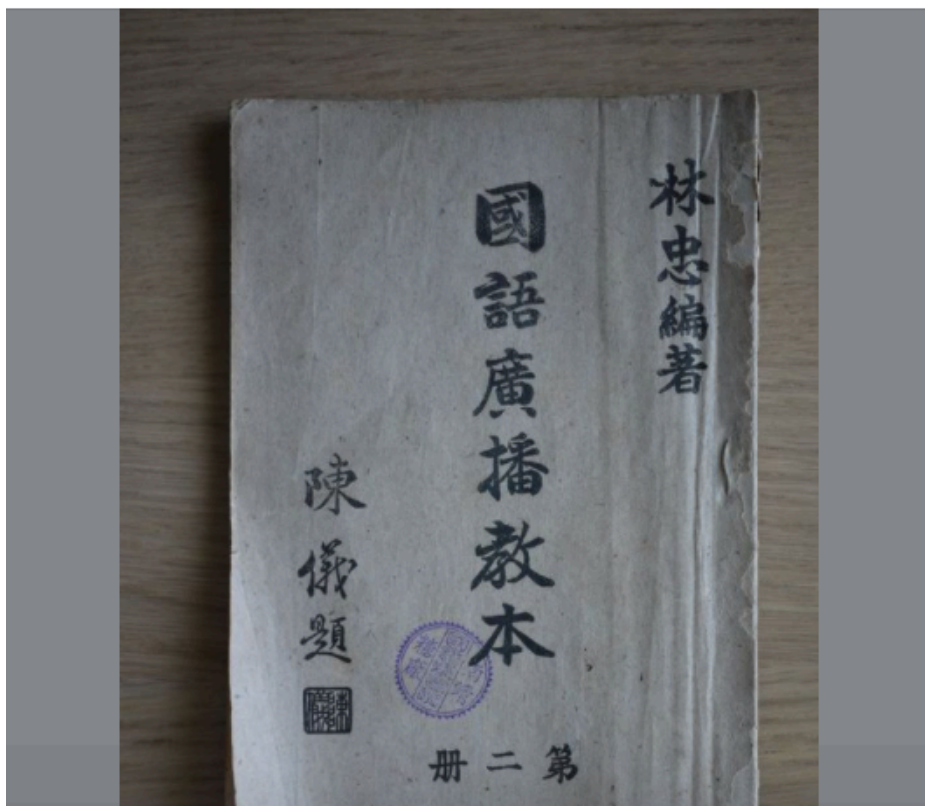 林忠編著
國語廣播教本
陳儀題
第二册